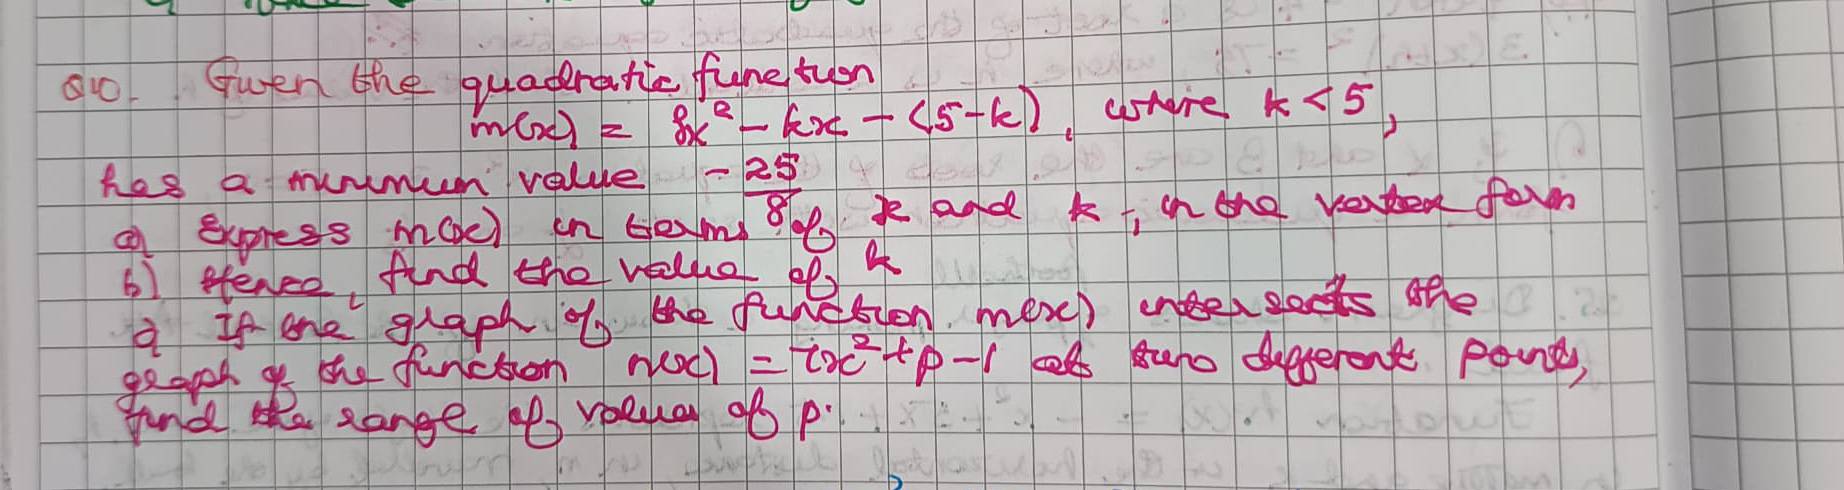 Q10. Given the quadratic function
m(x) = 8x² - kx - (5-k), where k < 5,
has a minimum value -25/8
a) Express m(x) in terms of x and k, in the vertex form
b) Hence, find the value of k
c) If the graph of the function m(x) intersects the
graph of the function n(x) = 7x² + p - 1 at two different points,
find the range of values of p.